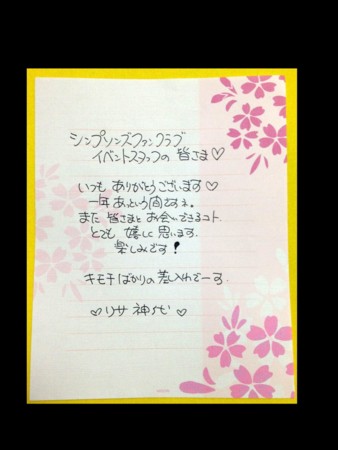 シンプソンズファンクラブ
イベントスタッフの 皆さま♡
いつも ありがとうございます♡
一年 あっという間ですネ。
また 皆さまと お会いできるコト、
とても 嬉しく 思います。
楽しみです!
キモチばかりの 差し入れでーす。
♡リサ 神代♡